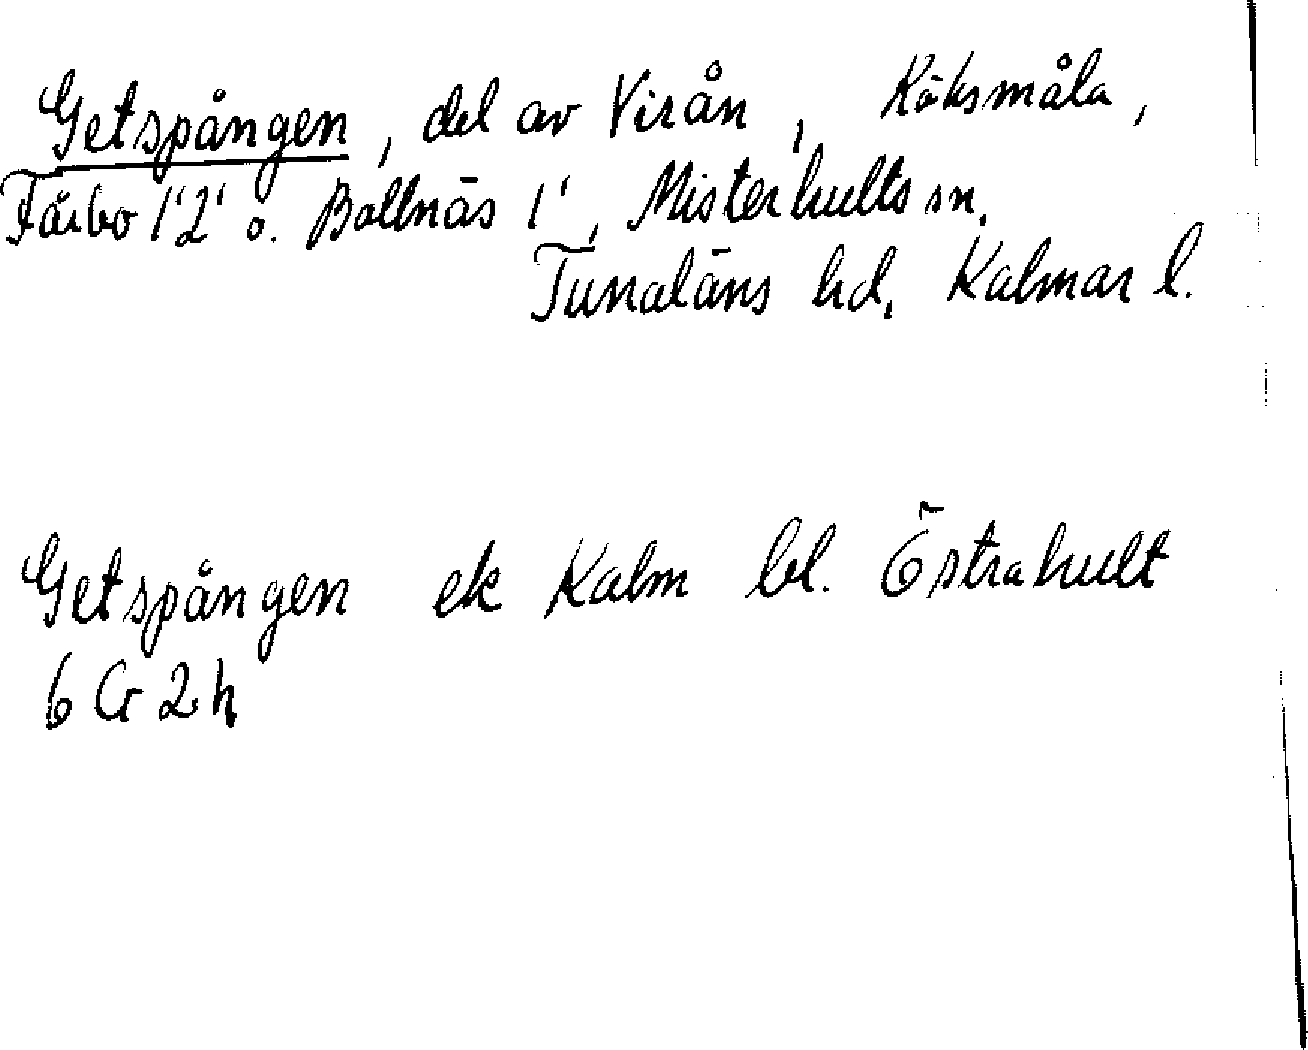 Getspången, del av Virån, Röksmåla,
Fårbo 1¹2¹ o. Bollnäs 1¹, Misterhults sn.
Tunaläns hd. Kalmar l.
Getspången ek Kalm bl. Östrahult
6 G 2 h